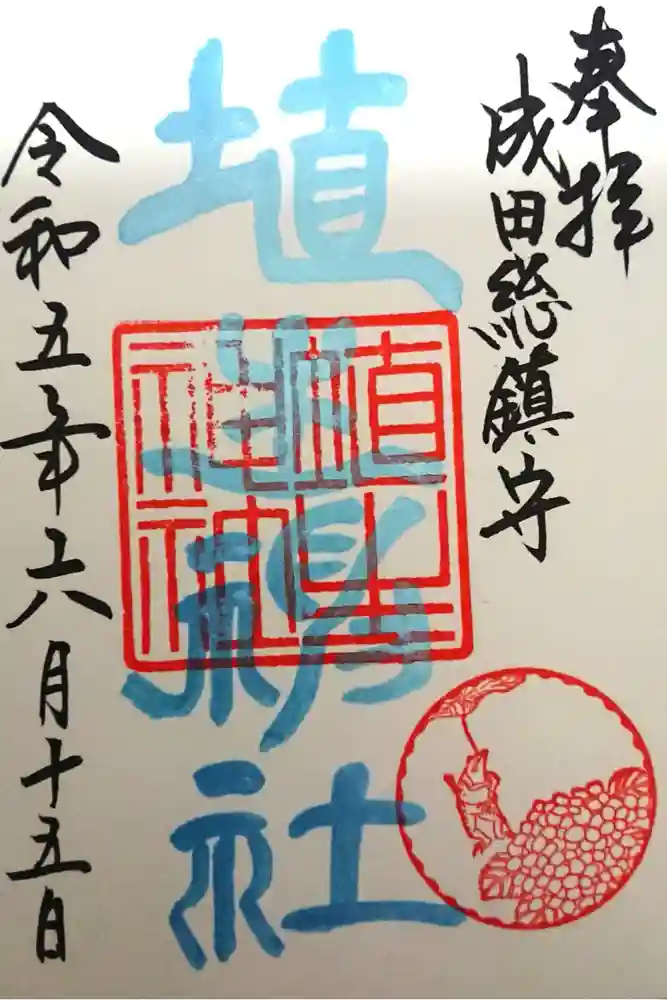 奉拝
成田総鎮守
埴生神社
埴生神社
令和五年六月十五日